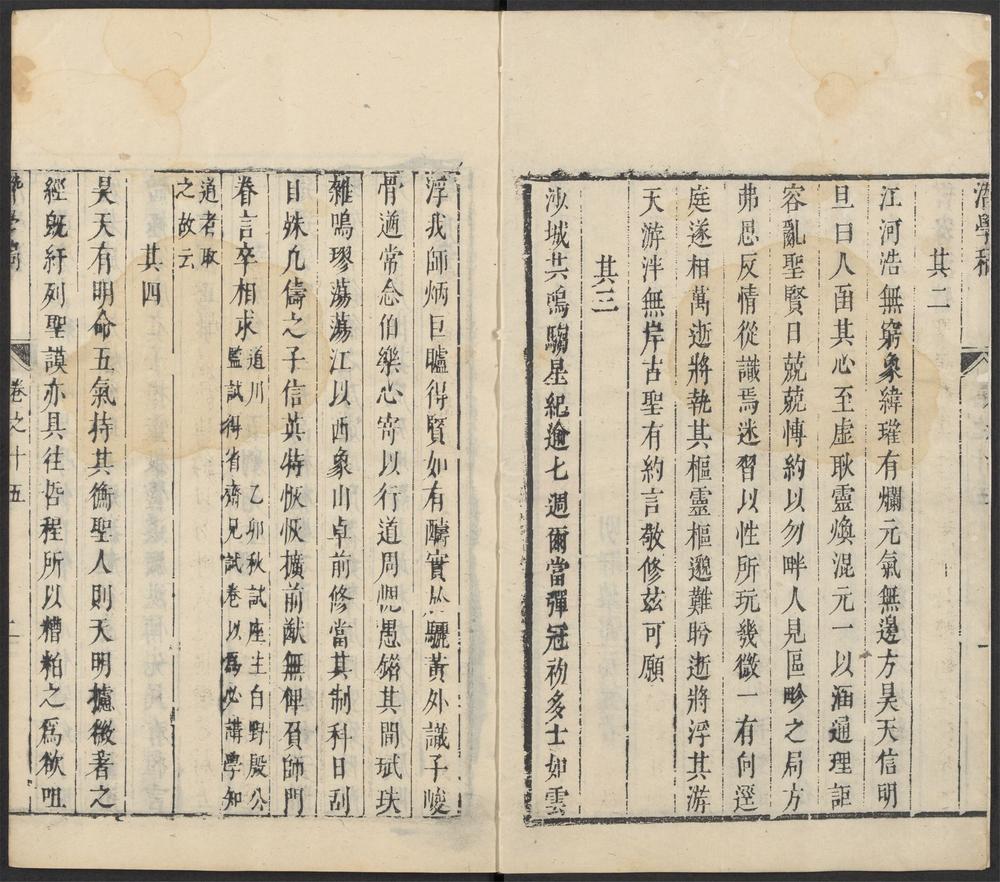 浩學稿
其二
江河浩無窮象緯璀有爛元氣無邊方昊天信明
旦曰人函其心至虛耿靈煥混元一以涵通理詎
容亂聖賢日兢兢慱約以勿畔人見區畛之局方
弗思反情從識焉迷習以性所玩幾微一有何逕
庭遂相萬逝將執其樞靈樞邈難盻逝將浮其游
天游泮無岸古聖有約言敬修茲可願
其三
沙城共鳴騶星紀逾七週爾當彈冠初多士如雲
浮我師炳巨矑得賢如有醻實丛驪黃外識子峻
骨遒常念伯樂心寄以行道周愳愚貓其間珷玞
雜鳴璆蕩蕩江以西象山卓前修當其制科日刮
目姝凢儔之子信英特恢恢擴前猷無俾負師門
眷言卒相求道川　乙卯秋試座生白野殷公
監試得省齋兄試卷以爲必講學知
道者取
之故云
其四
昊天有明命五氣持其衡聖人則天明攄微著之
經旣紆列聖謨亦具往哲程所以糟粕之爲欲咀
卷之十五
二